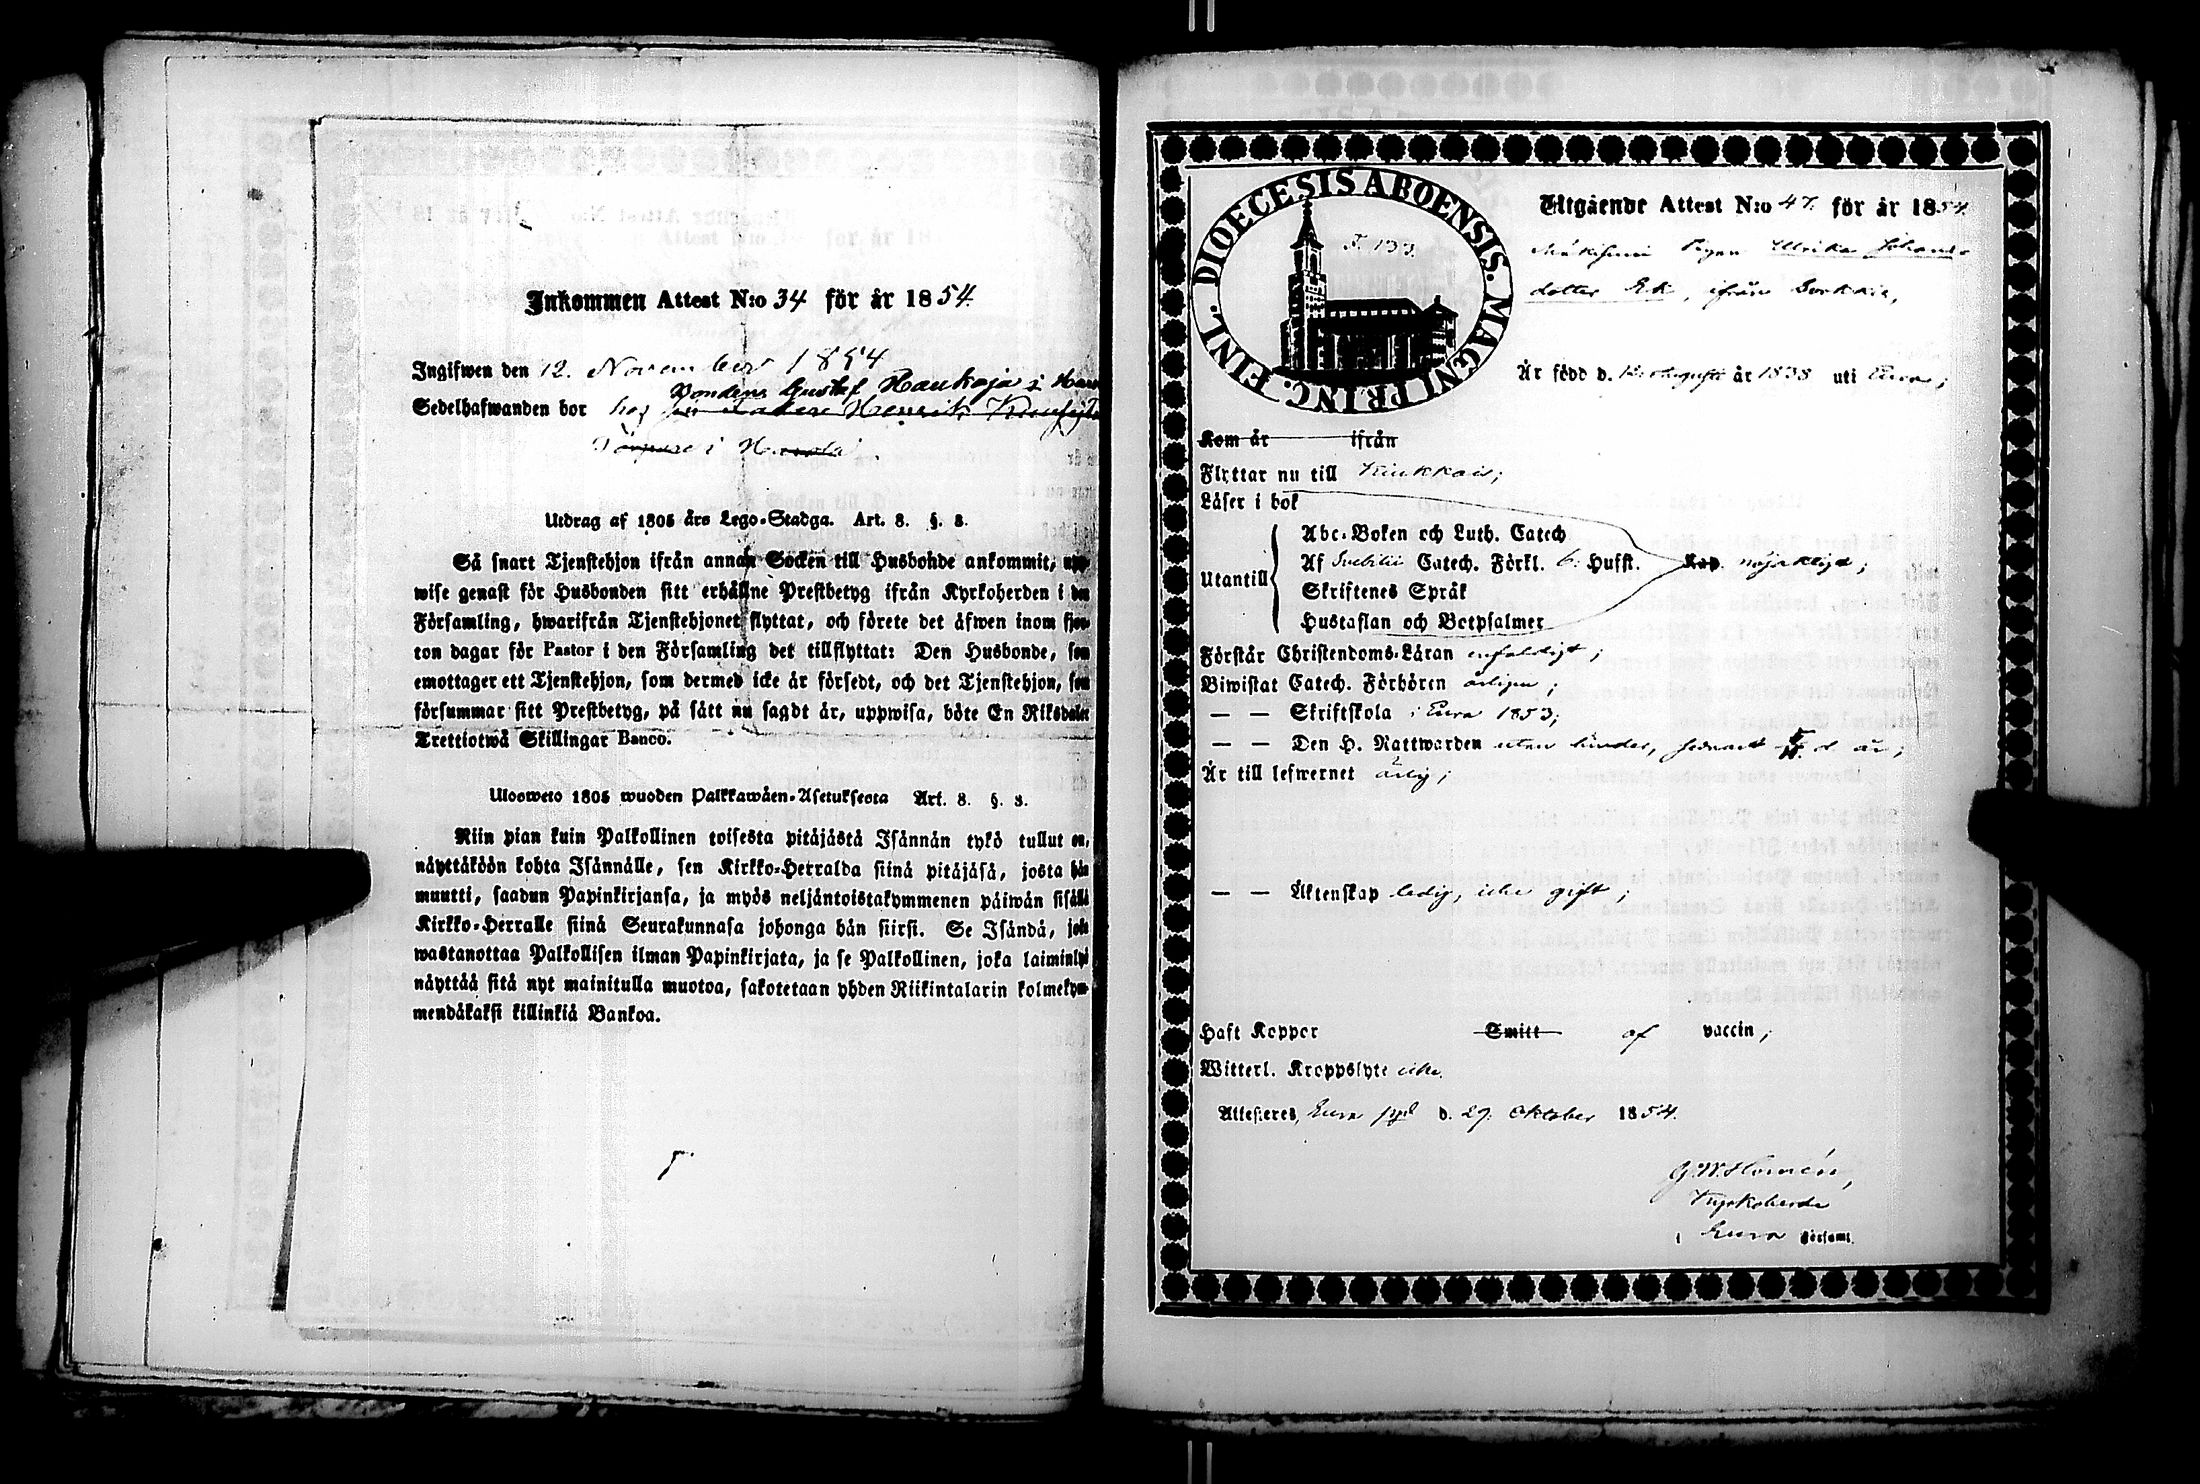 Inkommen Attest N:o 34 för år 1854.
Ingifwen den 12. November 1854
Bonden Gustaf Haukoja i
Sedelhafwanden bor hos Henrik
i
Utdrag af 1805 års Lego-Stadga. Art. 8. §. 3.
Så snart Tjenstehjon ifrån annan Socken till Husbonde ankommit, upp-
wise genast för Husbonden sitt erhållne Prestbetyg ifrån Kyrkoherden i den
Församling, hwarifrån Tjenstehjonet flyttat, och förete det äfwen inom fjor-
ton dagar för Pastor i den Församling det tillflyttat: Den Husbonde, som
emottager ett Tjenstehjon, som dermed icke är försedt, och det Tjenstehjon, som
försummar sitt Prestbetyg, på sätt nu sagdt är, uppwisa, böte En Riksdaler
Trettiotwå Skillingar Banco.
Ulosweto 1805 wuoden Palkkawäen-Asetuksesta Art. 8. §. 3.
Niin pian kuin Palkollinen toisesta pitäjästä Isännän tykö tullut on,
näyttäköön kohta Isännälle, sen Kirkko-Herralda siinä pitäjäsä, josta hän
muutti, saadun Papinkirjansa, ja myös neljäntoistakymmenen päiwän sisällä
Kirkko-Herralle siinä Seurakunnasa johonga hän siirsi. Se Isändä, joka
wastanottaa Palkollisen ilman Papinkirjata, ja se Palkollinen, joka laiminlyö
näyttää sitä nyt mainitulla muotoa, sakotetaan yhden Riikintalarin kolmekym-
mendäkaksi killinkiä Bankoa.
DIOECESIS ABOENSIS. MAGNI PRINC. FINL.
F. 133.
Utgående Attest N:o 47. för år 1854.
Pigan Ulrika Johans-
dotter Ek, ifrån
Är född d. Augusti år 1838 uti Eura;
Kom år ifrån
Flyttar nu till Kiukkais;
Läser i bok
Abc-Boken och Luth. Catech
Utantill Af Svebilii Catech. Förkl. 6. Husst. Kap. nöjaktigt;
Skriftenes Språk
Hustaflan och Botpsalmer
Förstår Christendoms-Läran enfaldigt;
Biwistat Catech. Förhören årligen;
— — Skriftskola i Eura 1853;
— — Den H. Nattwarden utan hinder, senast d. år;
Är till lefwernet ärlig;
— — Äktenskap ledig, icke gift;
Haft Koppor Smitt af vaccin;
Witterl. Kroppslyte icke.
Attesteres, Eura d. 29. Oktober 1854.
Kyrkoherde
i Eura Församl.